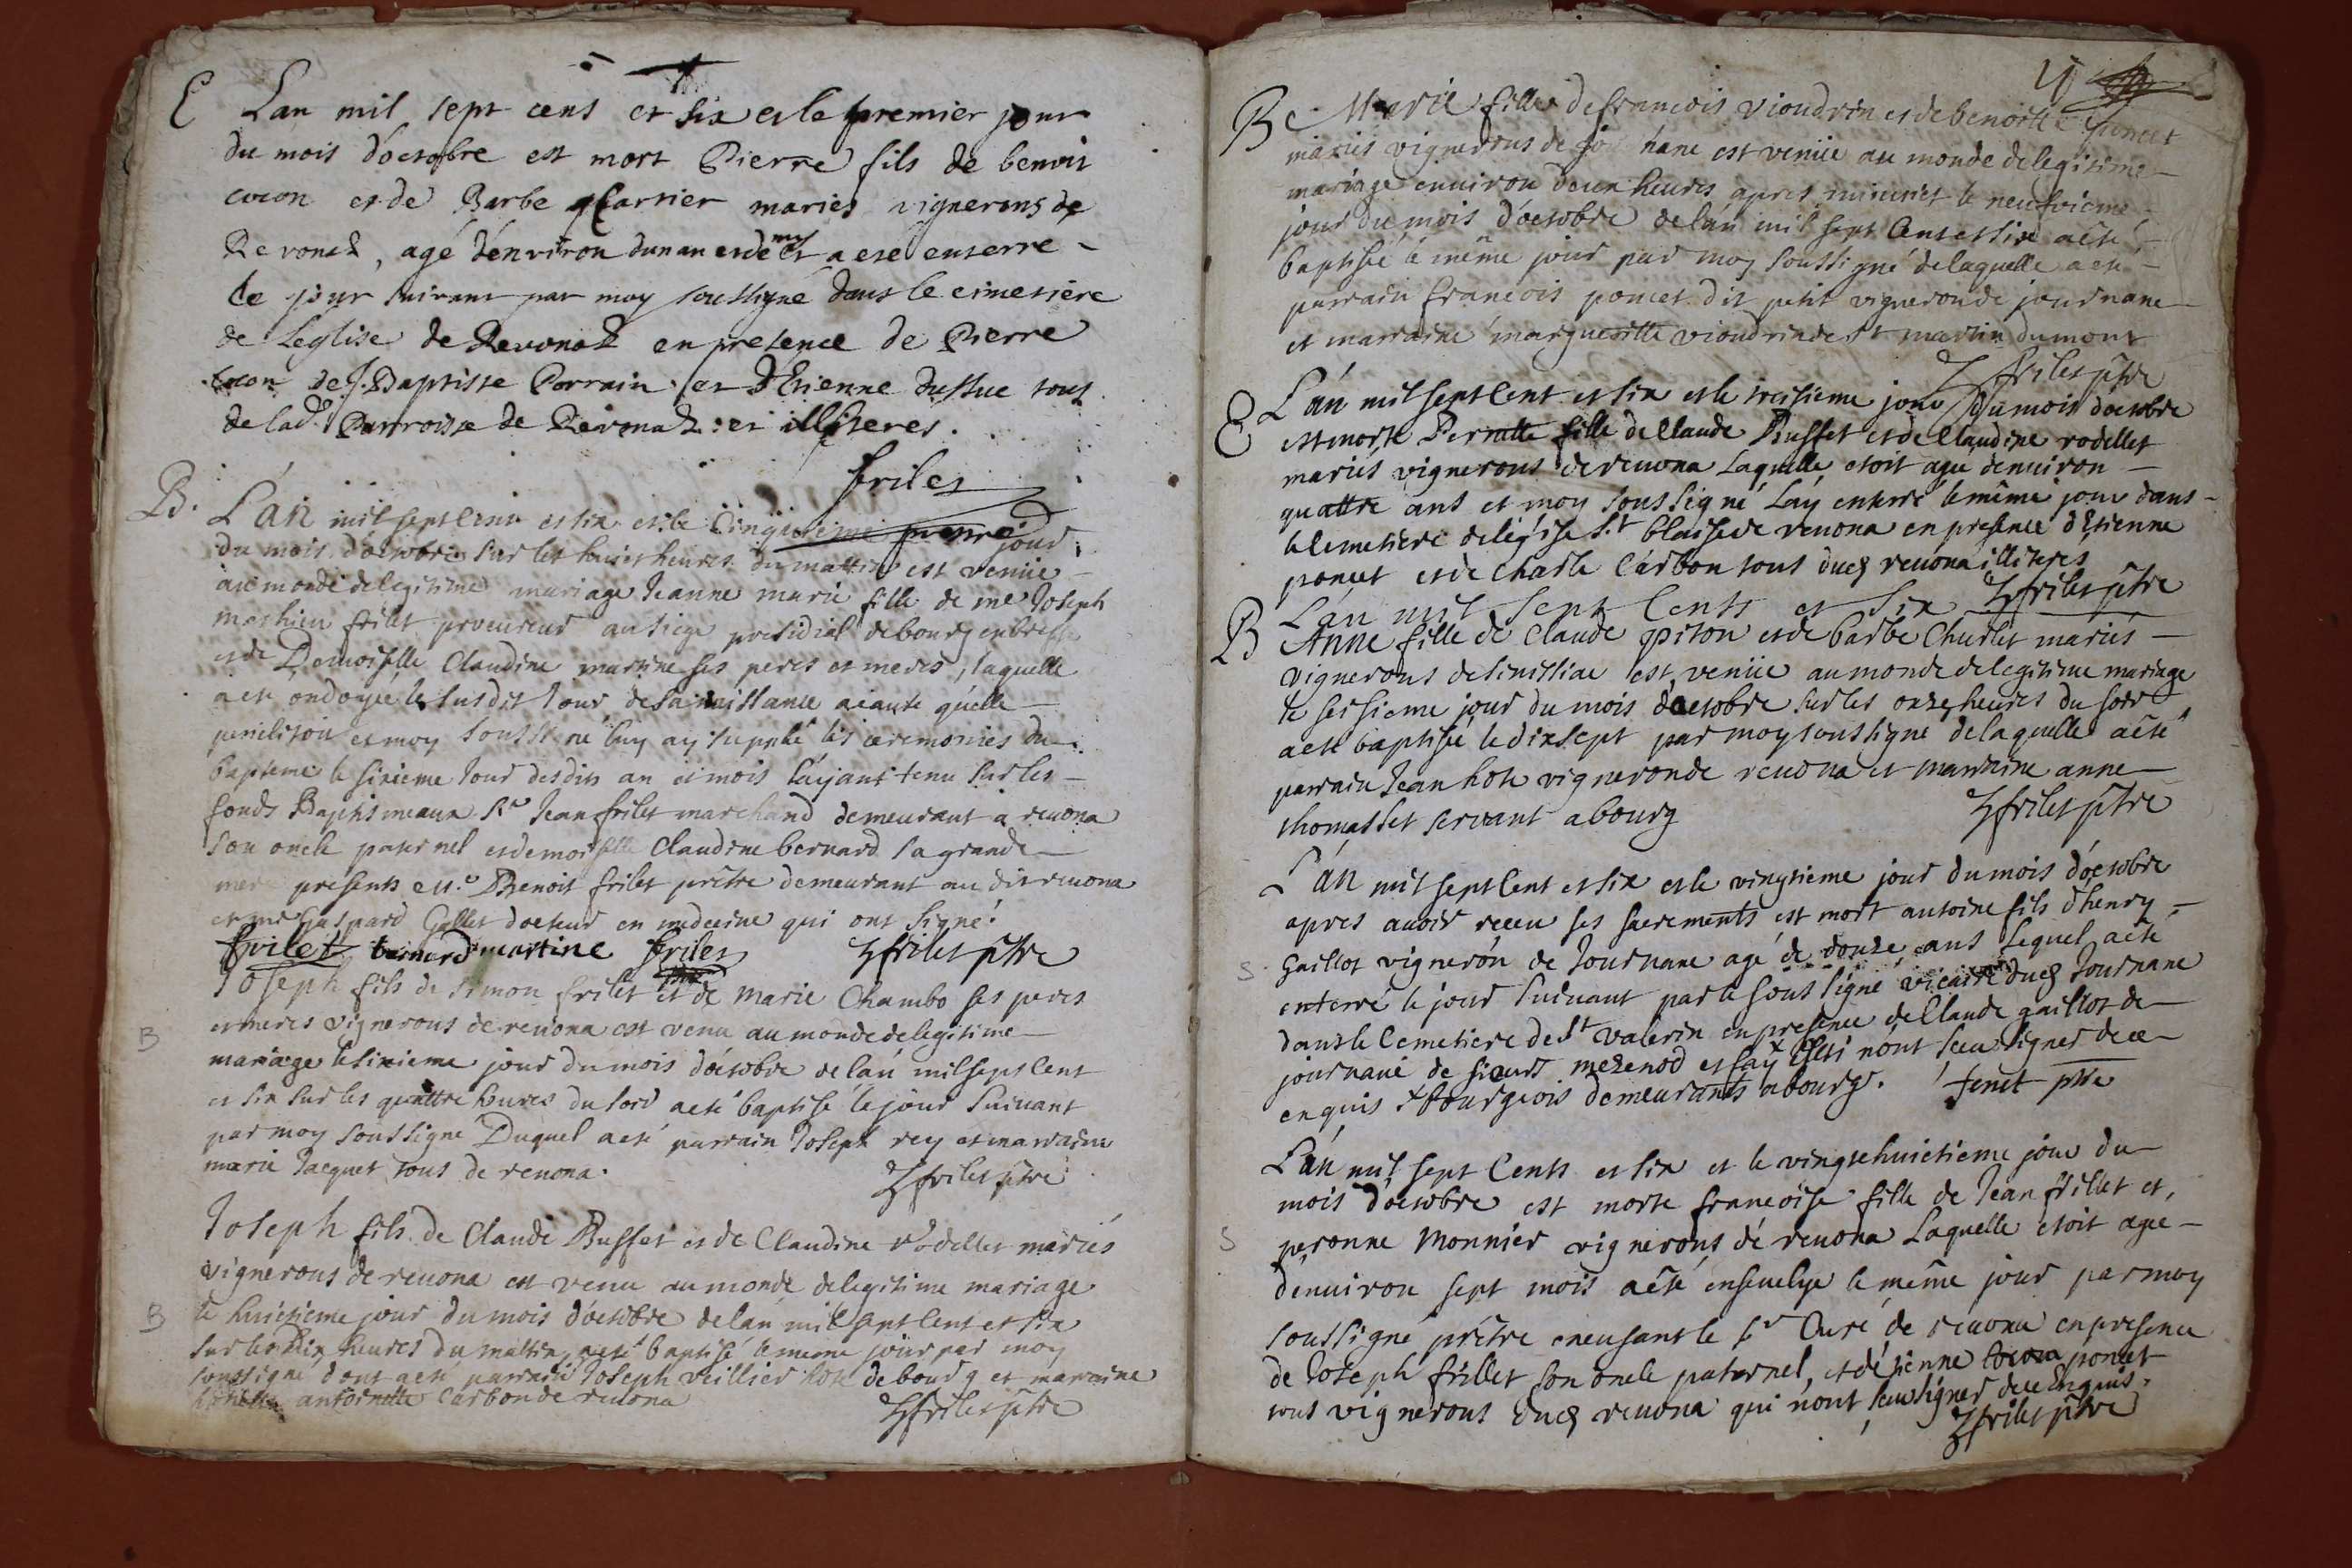 E Lan mil sept cens et six et le premier jour
du mois d'octobre est mort Pierre fils de benoit
cocon et de Barbe Cartier mariés vignerons de
Revonas, agé d'environ dun an et demy a eté enterre
le jour suivant par moy soussigné dans le cimetiere
de L'eglise de Revonas en presence de Pierre
cocon de J. Baptiste Perrain et d'Etienne dussue tous
de lad. Parroisse de Revonas : et illiteres.
friles
B. L'án mil sept cent et six et le Cinquieme jour
du mois d'octobre sur les huict heures du mattin est venüe
au monde de legitime mariage Jeanne marie fille de me Joseph
mathieu frilet procureur au siege presidial de bourg en bresse
et de Demoiselle Claudine martine ses peres et meres, laquelle
a eté ondoyée le susdit Jour de sa naissance a cause qu'elle
periclitoit et moy soussigné luy ay supplée les ceremonies du
bapteme le sixieme Jour desdits an et mois l'ayant tenu sur les
fonds Baptismeaux Sr Jean frilet marchand demeurant a reuona
son oncle paternel et demoiselle Claudine bernard sa grande
mere presents Mre Benoit frilet prêtre demeurant au dit reuona
et me Gaspard Gallet docteur en medecine qui ont signé.
frilet bernard martine friles frilet ptre
B Joseph fils de simon frilet et de Marie Chambo ses peres
et meres vignerons de reuona est venu au monde de legitime
mariage le sixieme jour du mois d'octobre de l'an mil sept cent
et six sur les quattre heures du soir a eté baptisé le jour suiuant
par moy soussigné Duquel a eté parrain Joseph rey et marraine
marie Jacquet tous de reuona.
frilet ptre
Joseph fils de Claude Buffet et de Claudine rodellet mariés
vignerons de reuona est venu au monde de legitime mariage
B le huictieme jour du mois d'octobre de l'an mil sept cent et six
sur les dix heures du mattin, a eté baptisé le meme jour par moy
soussigné dont a eté parrain Joseph veillier hote de bourg et marraine
antoinette Carbon de reuona
frilet ptre
B Marie fille de francois vioudrin et de benoitte poncet
mariés vignerons de journane est venüe au monde de legitime
mariage enuiron deux heures apres minuict le neufvieme
jour du mois d'octobre de l'an mil sept Cent et six a eté
baptisée le même jour par moy soussigné de laquelle a eté
parrain francois poncet dit petit vigneron de journane
et marraine margueritte vioudrin de St martin du mont
frilet ptre
E L'án mil sept Cent et six et le treisieme jour du mois d'octobre
est morte Perratte fille de Claude Buffet et de Claudine rodellet
mariés vignerons de reuona Laquelle etoit agée d'enuiron
quattre ans et moy soussigné L'ay enterré le même jour dans
le Cemetiere de l'église St blaise de reuona en presence d'Etienne
poncet et de charle Carbon tous dud reuona illiteres
frilet ptre
L'án mil sept Cents et six
B Anne fille de Claude piton et de barbe Churlet mariés
vignerons de senissiac est venüe au monde de legitime mariage
le seisieme jour du mois d'octobre sur les onze heures du soir
a eté baptisée le dixsept par moy soussigné de laquelle a eté
parrain Jean hote vigneron de reuona et marraine anne
thomasset servant a bourg
frilet ptre
L'án mil sept Cent et six et le vingtieme jour du mois d'octobre
apres auoir receu ses sacrements est mort antoine fils d'henry
S Gaillot vignerón de Journane agé de douze ans Lequel a eté
enterré le jour suiuant par le soussigné vicaire dud Journane
dans le Cemetiere de St valerin en presence de Claude gaillot de
journane de sieurs mezenod et fay x n'ont sceu signer de ce
enquis x bourgeois demeurants a bourg. tenet ptre
L'án mil sept Cents et six et le vingt huictieme jour du
mois d'octobre est morte francoise fille de Jean frillet et
S peronne Monnier vignerons de reuona Laquelle etoit agée
d'enuiron sept mois a eté enseuelye le même jour par moy
soussigné prêtre encusant le sr Curé de reuona en presence
de Joseph frillet son oncle paternel, et d'etienne poncet
tous vignerons dud reuona qui n'ont sceu signer de ce Enquis.
frilet ptre